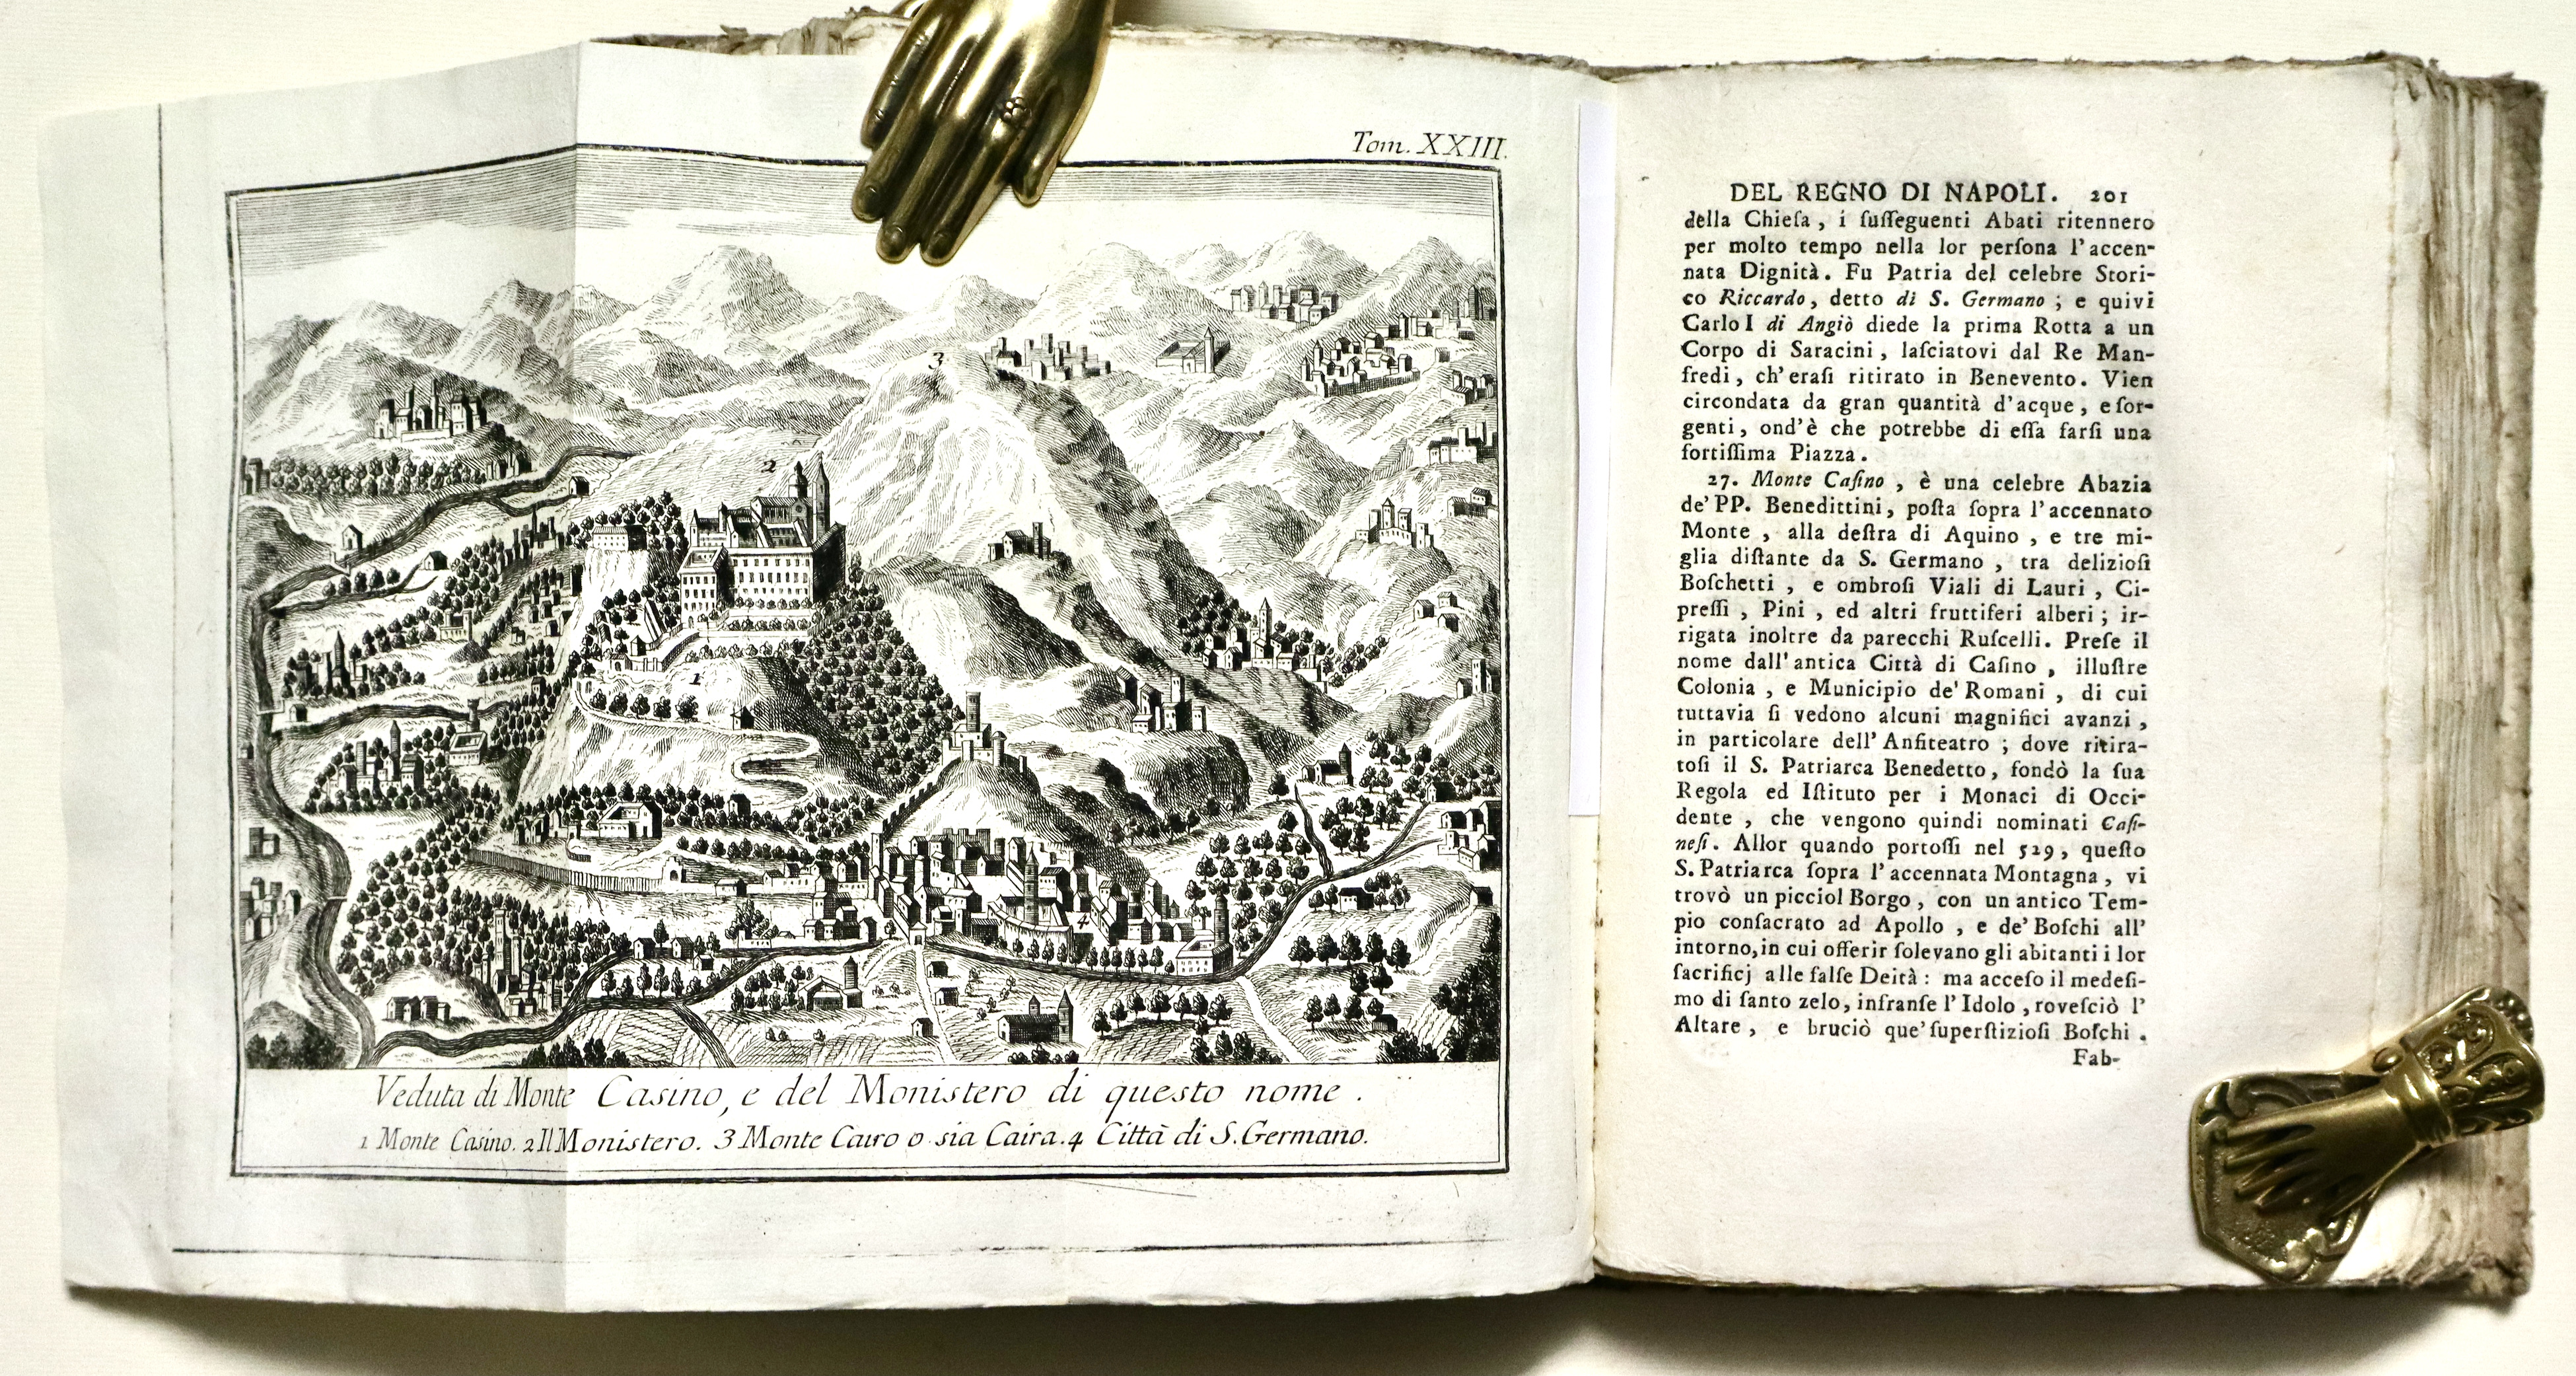 Tom. XXIII.
3
2
1
4
Veduta di Monte Casino, e del Monistero di questo nome.
1 Monte Casino. 2 Il Monistero. 3 Monte Cairo o sia Caira. 4 Città di S. Germano.
DEL REGNO DI NAPOLI. 201
della Chieſa, i ſuſſeguenti Abati ritennero
per molto tempo nella lor perſona l'accen-
nata Dignità. Fu Patria del celebre Stori-
co Riccardo, detto di S. Germano; e quivi
Carlo I di Angiò diede la prima Rotta a un
Corpo di Saracini, laſciatovi dal Re Man-
fredi, ch'eraſi ritirato in Benevento. Vien
circondata da gran quantità d'acque, e ſor-
genti, ond'è che potrebbe di eſſa farſi una
fortiſſima Piazza.
27. Monte Caſino, è una celebre Abazia
de' PP. Benedittini, poſta ſopra l'accennato
Monte, alla deſtra di Aquino, e tre mi-
glia diſtante da S. Germano, tra delizioſi
Boſchetti, e ombroſi Viali di Lauri, Ci-
preſſi, Pini, ed altri fruttiferi alberi; ir-
rigata inoltre da parecchi Ruſcelli. Preſe il
nome dall'antica Città di Caſino, illuſtre
Colonia, e Municipio de' Romani, di cui
tuttavia ſi vedono alcuni magnifici avanzi,
in particolare dell'Anfiteatro; dove ritira-
toſi il S. Patriarca Benedetto, fondò la ſua
Regola ed Iſtituto per i Monaci di Occi-
dente, che vengono quindi nominati Caſi-
neſi. Allor quando portoſſi nel 529, queſto
S. Patriarca ſopra l'accennata Montagna, vi
trovò un picciol Borgo, con un antico Tem-
pio conſacrato ad Apollo, e de' Boſchi all'
intorno, in cui offerir ſolevano gli abitanti i lor
ſacrificj alle falſe Deità: ma acceſo il medeſi-
mo di ſanto zelo, infranſe l'Idolo, roveſciò l'
Altare, e bruciò que' ſuperſtizioſi Boſchi.
Fab-